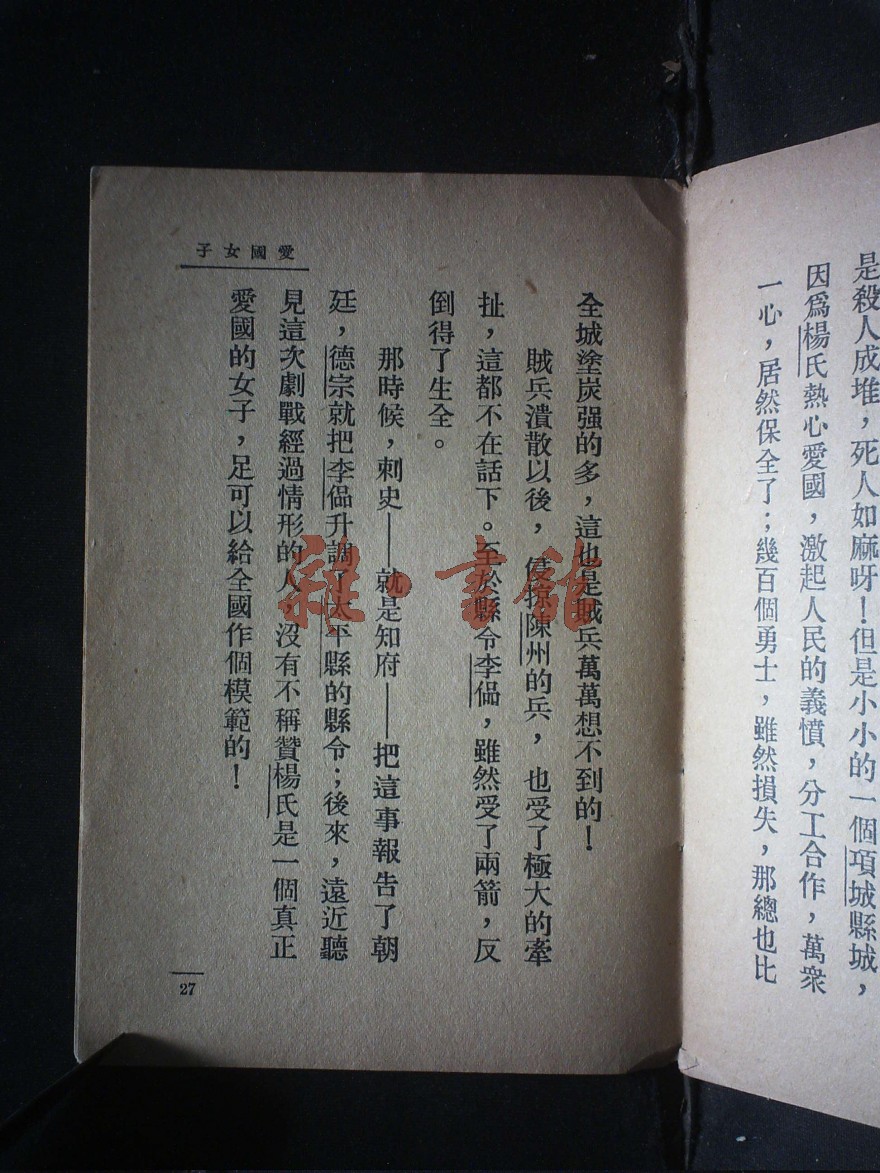 是殺人成堆，死人如麻呀！但是小小的一個項城縣城，
因爲楊氏熱心愛國，激起人民的義憤，分工合作，萬衆
一心，居然保全了；幾百個勇士，雖然損失，那總也比
愛國女子
全城塗炭强的多，這也是賊兵萬萬想不到的！
賊兵潰散以後，侵掠陳州的兵，也受了極大的牽
扯，這都不在話下。至於縣令李偘，雖然受了兩箭，反
倒得了生全。
那時候，刺史——就是知府——把這事報告了朝
廷，德宗就把李偘升調了太平縣的縣令；後來，遠近聽
見這次劇戰經過情形的人，沒有不稱贊楊氏是一個真正
愛國的女子，足可以給全國作個模範的！
27
雜·書館